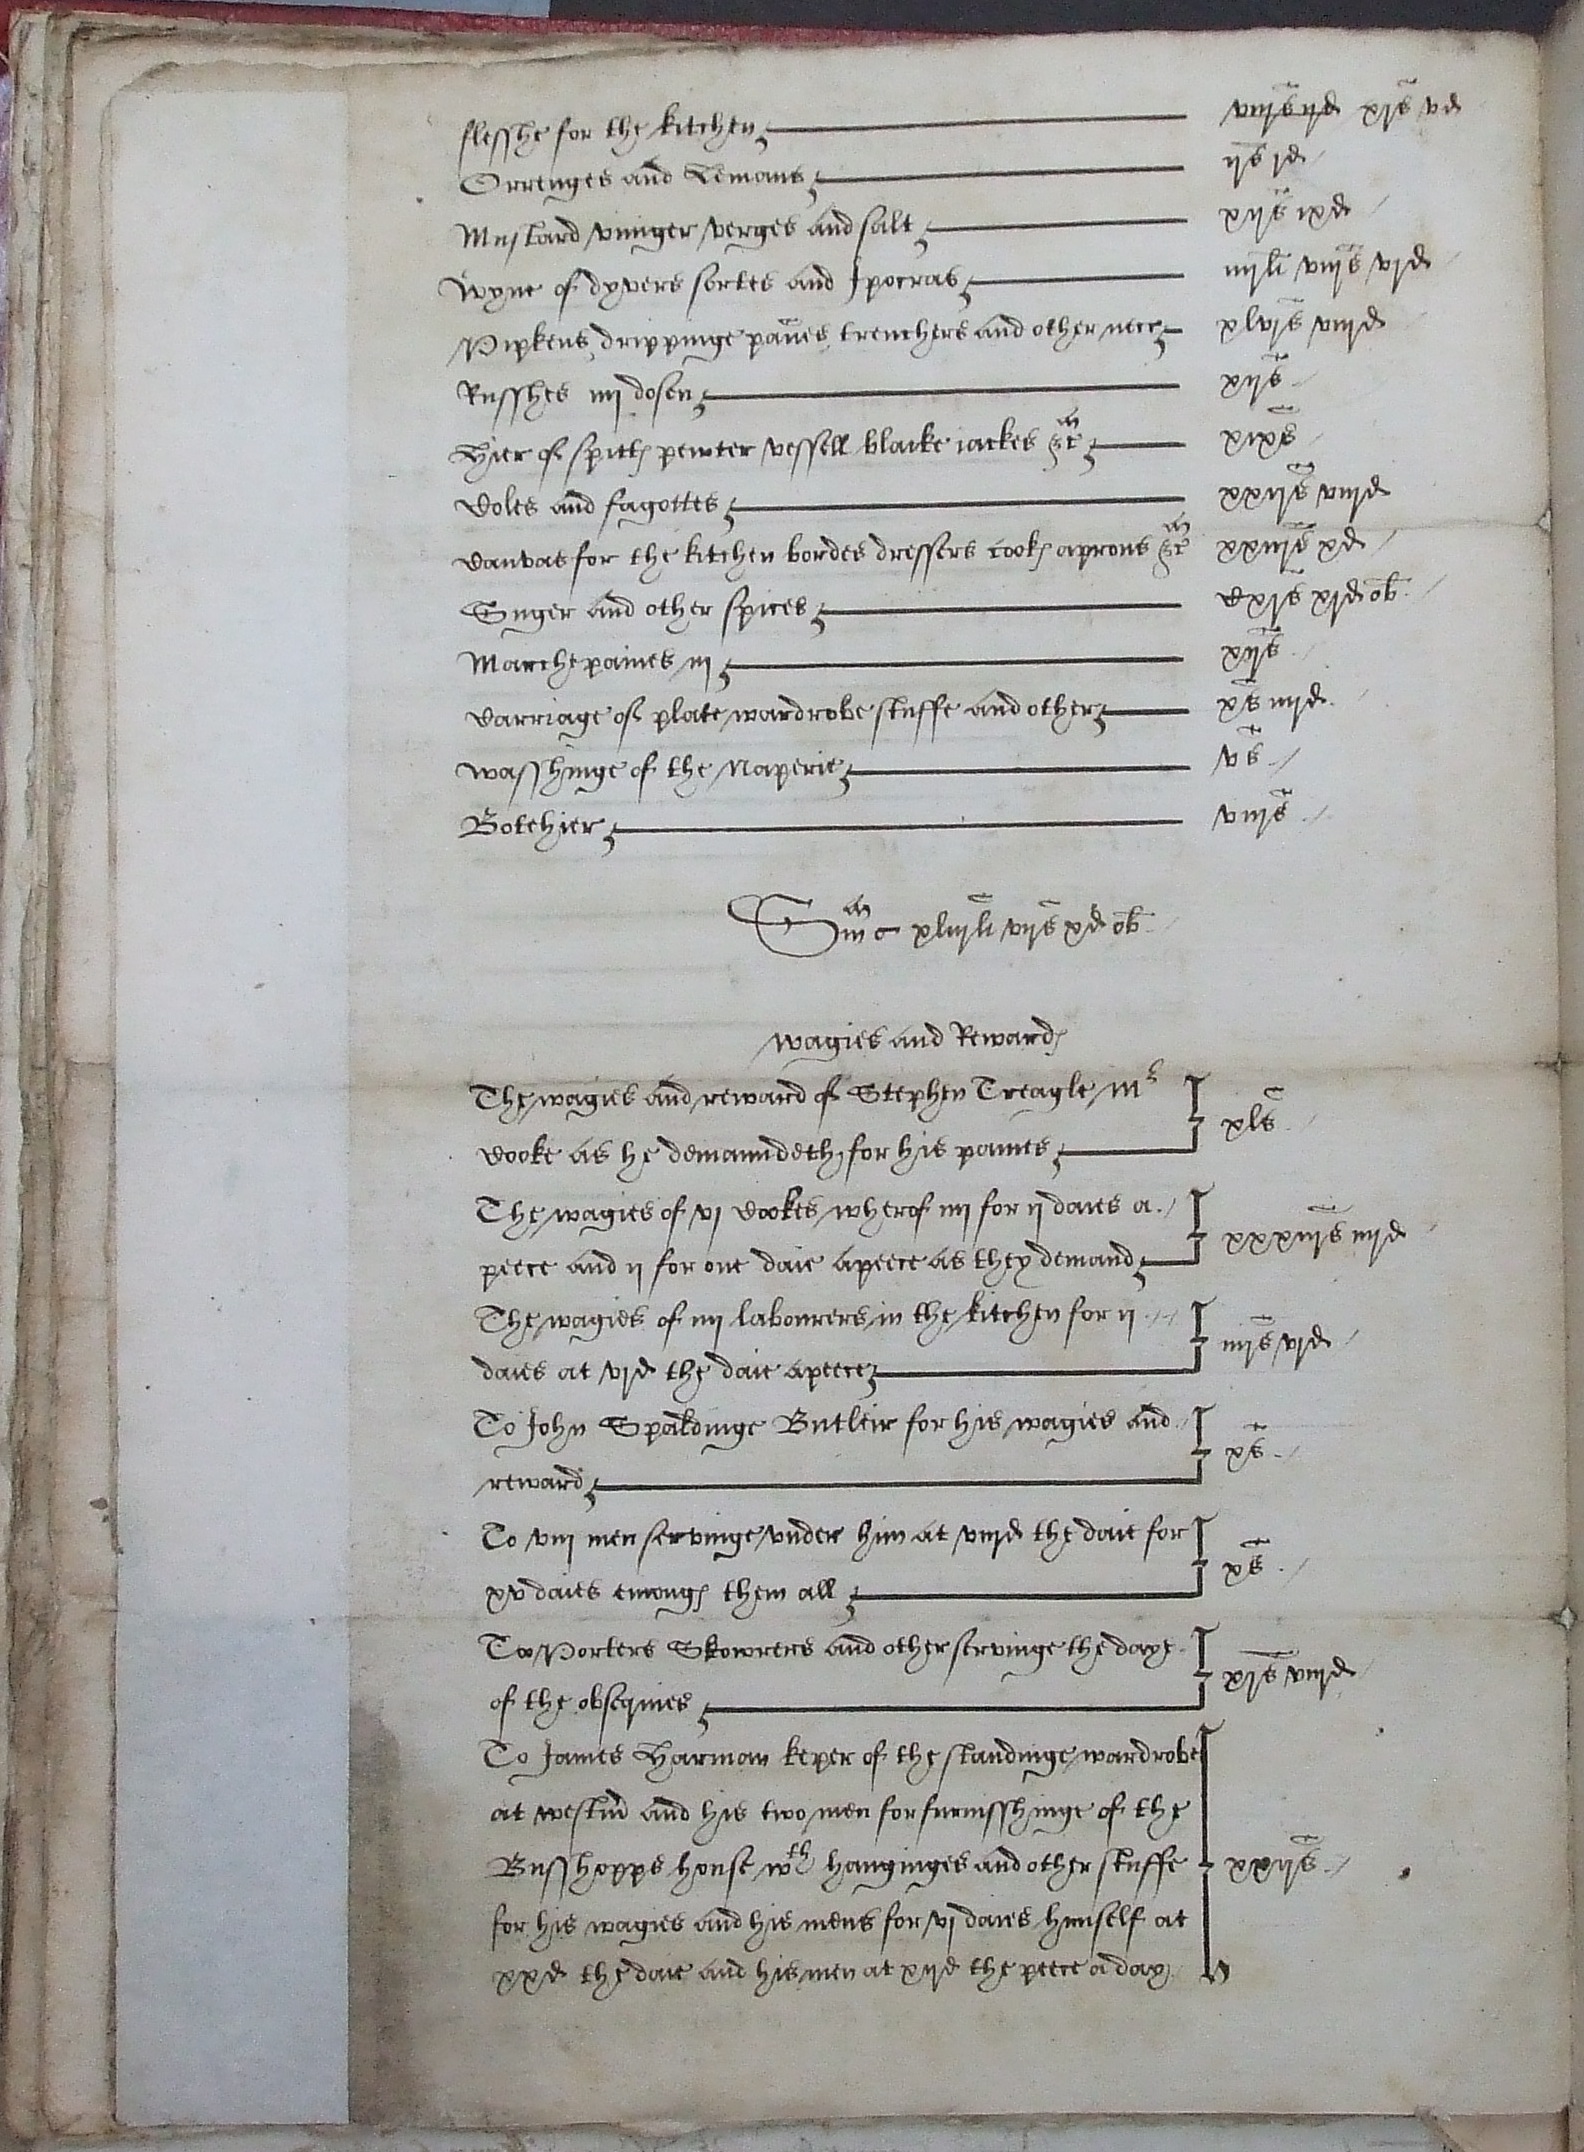 flesshe for the kitchen viijs ijd xjs vd
Orrenges and Lemans ijs jd
Mustard viniger verges and salt xijs ixd
Wyne of dyvers sortes and Ipocras iiijli viijs vjd
Pipkens drippinge pannes trenchers and other necc xlvjs viijd
Russhes iiij dosen xijs
Hier of spittes pewter vessell blacke jackes &c xixs
Coles and fagottes xxijs viijd
Canvas for the kitchen bordes dressers cookes aprons &c xxiijs xd
Suger and other spices Cxjs xjd ob
Marchepaines iij xijs
Carriage of plate wardrobe stuffe and other xs iiijd
wasshinge of the Naperie vs
Botehier viijs
Sma xliijli vijs xd ob
Wagies and Rewardes
The wagies and reward of Stephen Treagle mr
Cooke as he demaundeth for his paines xls
The wagies of vj Cookes wherof iiij for ij daies a
peece and ij for one daie apeece as they demand xxxiijs iiijd
The wagies of iiij labourers in the kitchen for ij
daies at vjd the daie apeece iiijs vjd
To John Spaldinge Butleir for his wagies and
reward xs
To viij men servinge under him at viijd the daie for
xv daies emonges them all xs
To Porters Skowrers and other servinge the daye
of the obsequies xjs viijd
To James Harman keper of the standinge wardrobe
at westm and his two men for furnisshinge of the
Busshopps house wth hanginges and other stuffe xxijs
for his wagies and his mens for vj daies himself at
xxd the daie and his men at xijd the peece a day